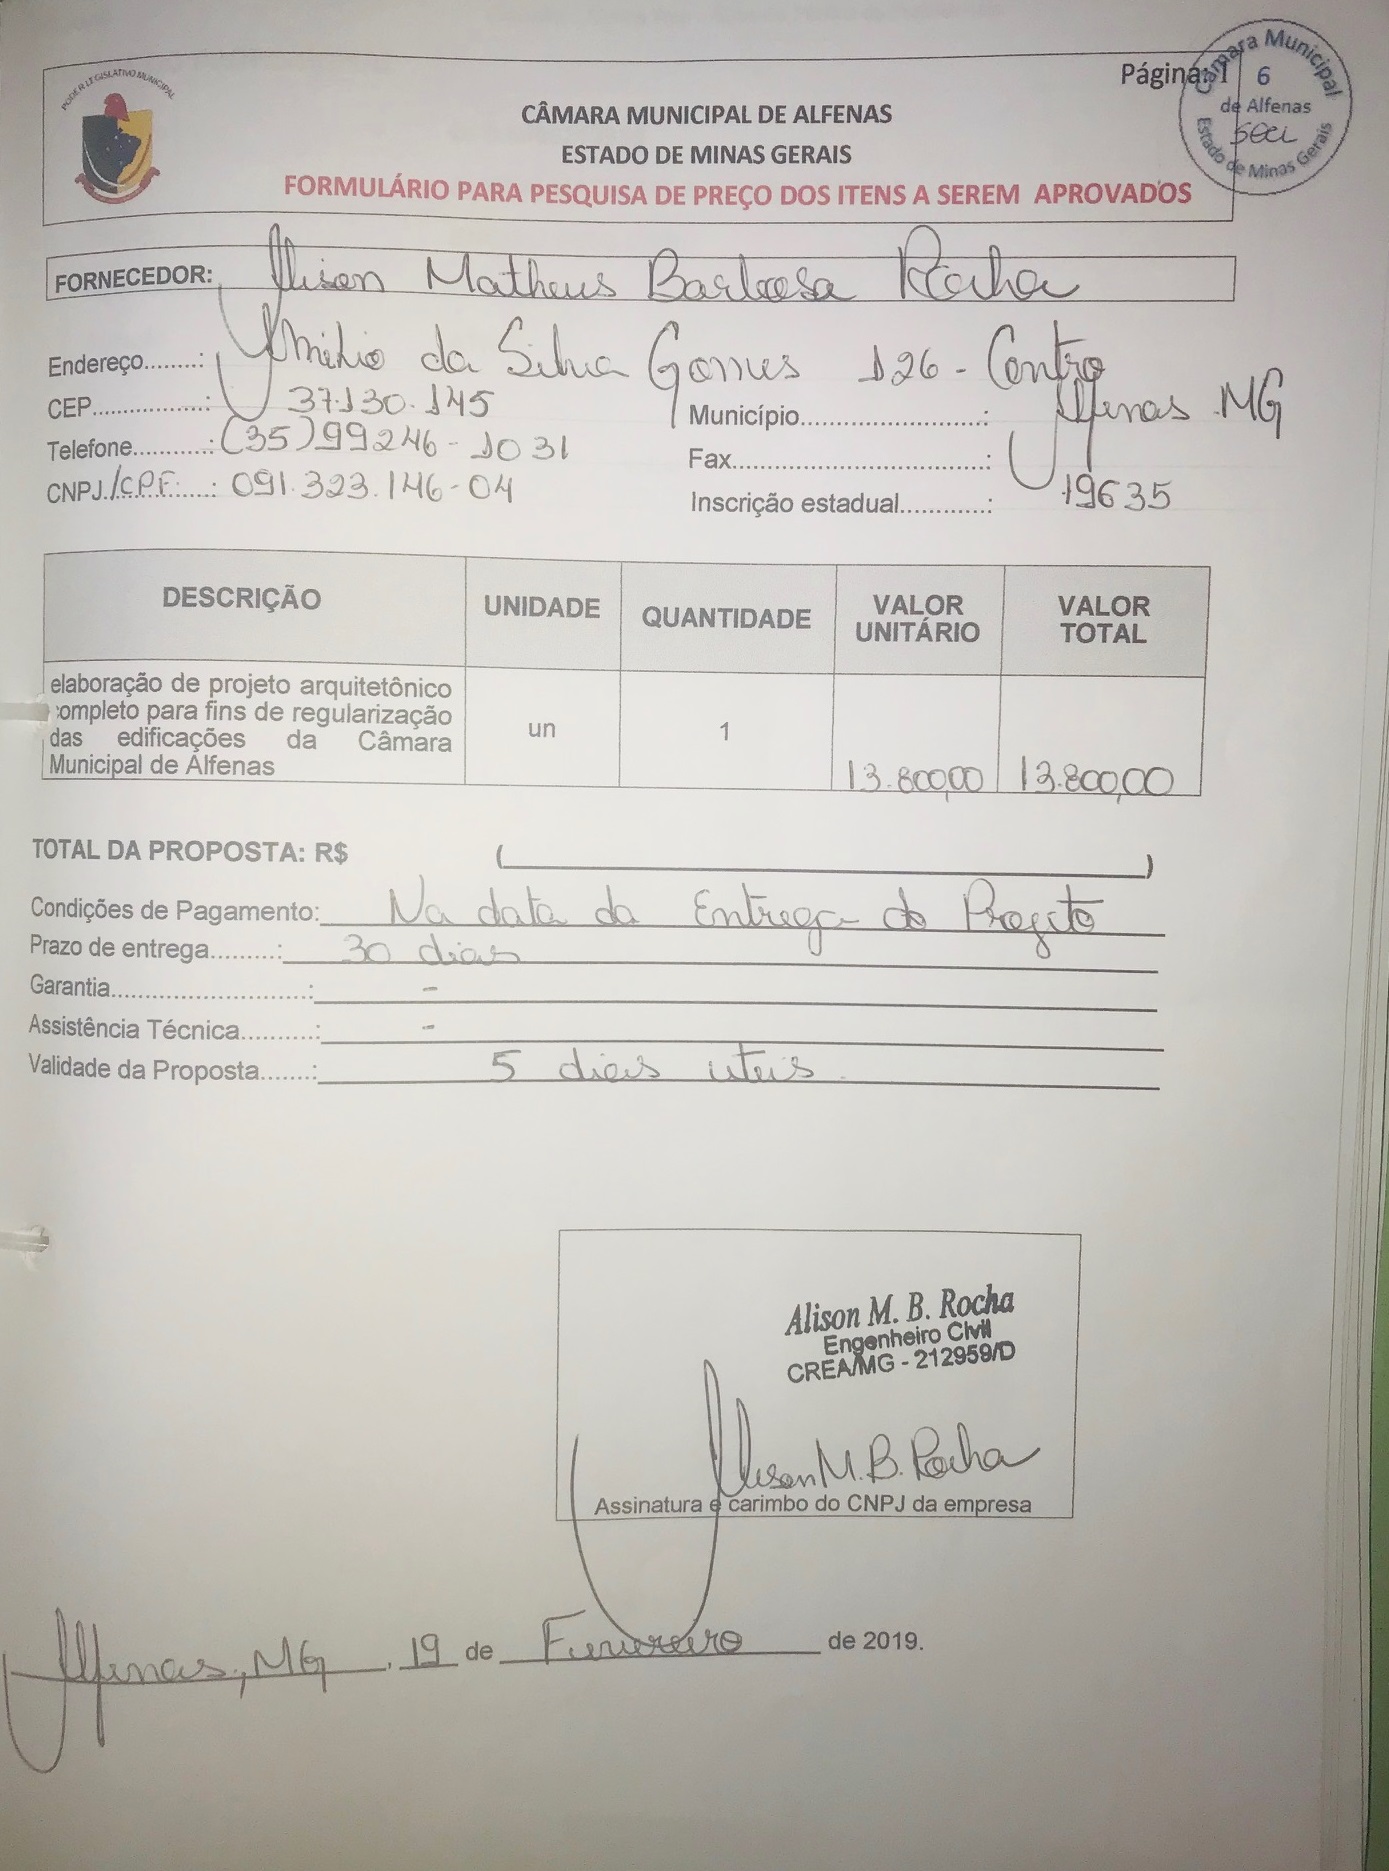 PODER LEGISLATIVO MUNICIPAL
Página: 1
Câmara Municipal
6
de Alfenas
Estado de Minas Gerais
CÂMARA MUNICIPAL DE ALFENAS
ESTADO DE MINAS GERAIS
FORMULÁRIO PARA PESQUISA DE PREÇO DOS ITENS A SEREM APROVADOS
FORNECEDOR: Alison Matheus Barbosa Rocha
Endereço........: da Silva Gomes 126 - Centro
CEP.................: 37130.145 Município..........................: Alfenas MG
Telefone...........: (35)99246-1031
Fax....................................:
CNPJ./C.P.F.....: 091.323.146-04
Inscrição estadual.............: 19635
DESCRIÇÃO UNIDADE QUANTIDADE VALOR UNITÁRIO VALOR TOTAL
elaboração de projeto arquitetônico
completo para fins de regularização
das edificações da Câmara
Municipal de Alfenas
un 1 13.800,00 13.800,00
TOTAL DA PROPOSTA: R$ (                    )
Condições de Pagamento: Na data da Entrega do Projeto
Prazo de entrega..........: 30 dias
Garantia.............................: -
Assistência Técnica...........: -
Validade da Proposta.......: 5 dias uteis.
Alison M. B. Rocha
Engenheiro Civil
CREA/MG - 212959/D
Alison M. B. Rocha
Assinatura e carimbo do CNPJ da empresa
Alfenas, MG, 19 de Fevereiro de 2019.